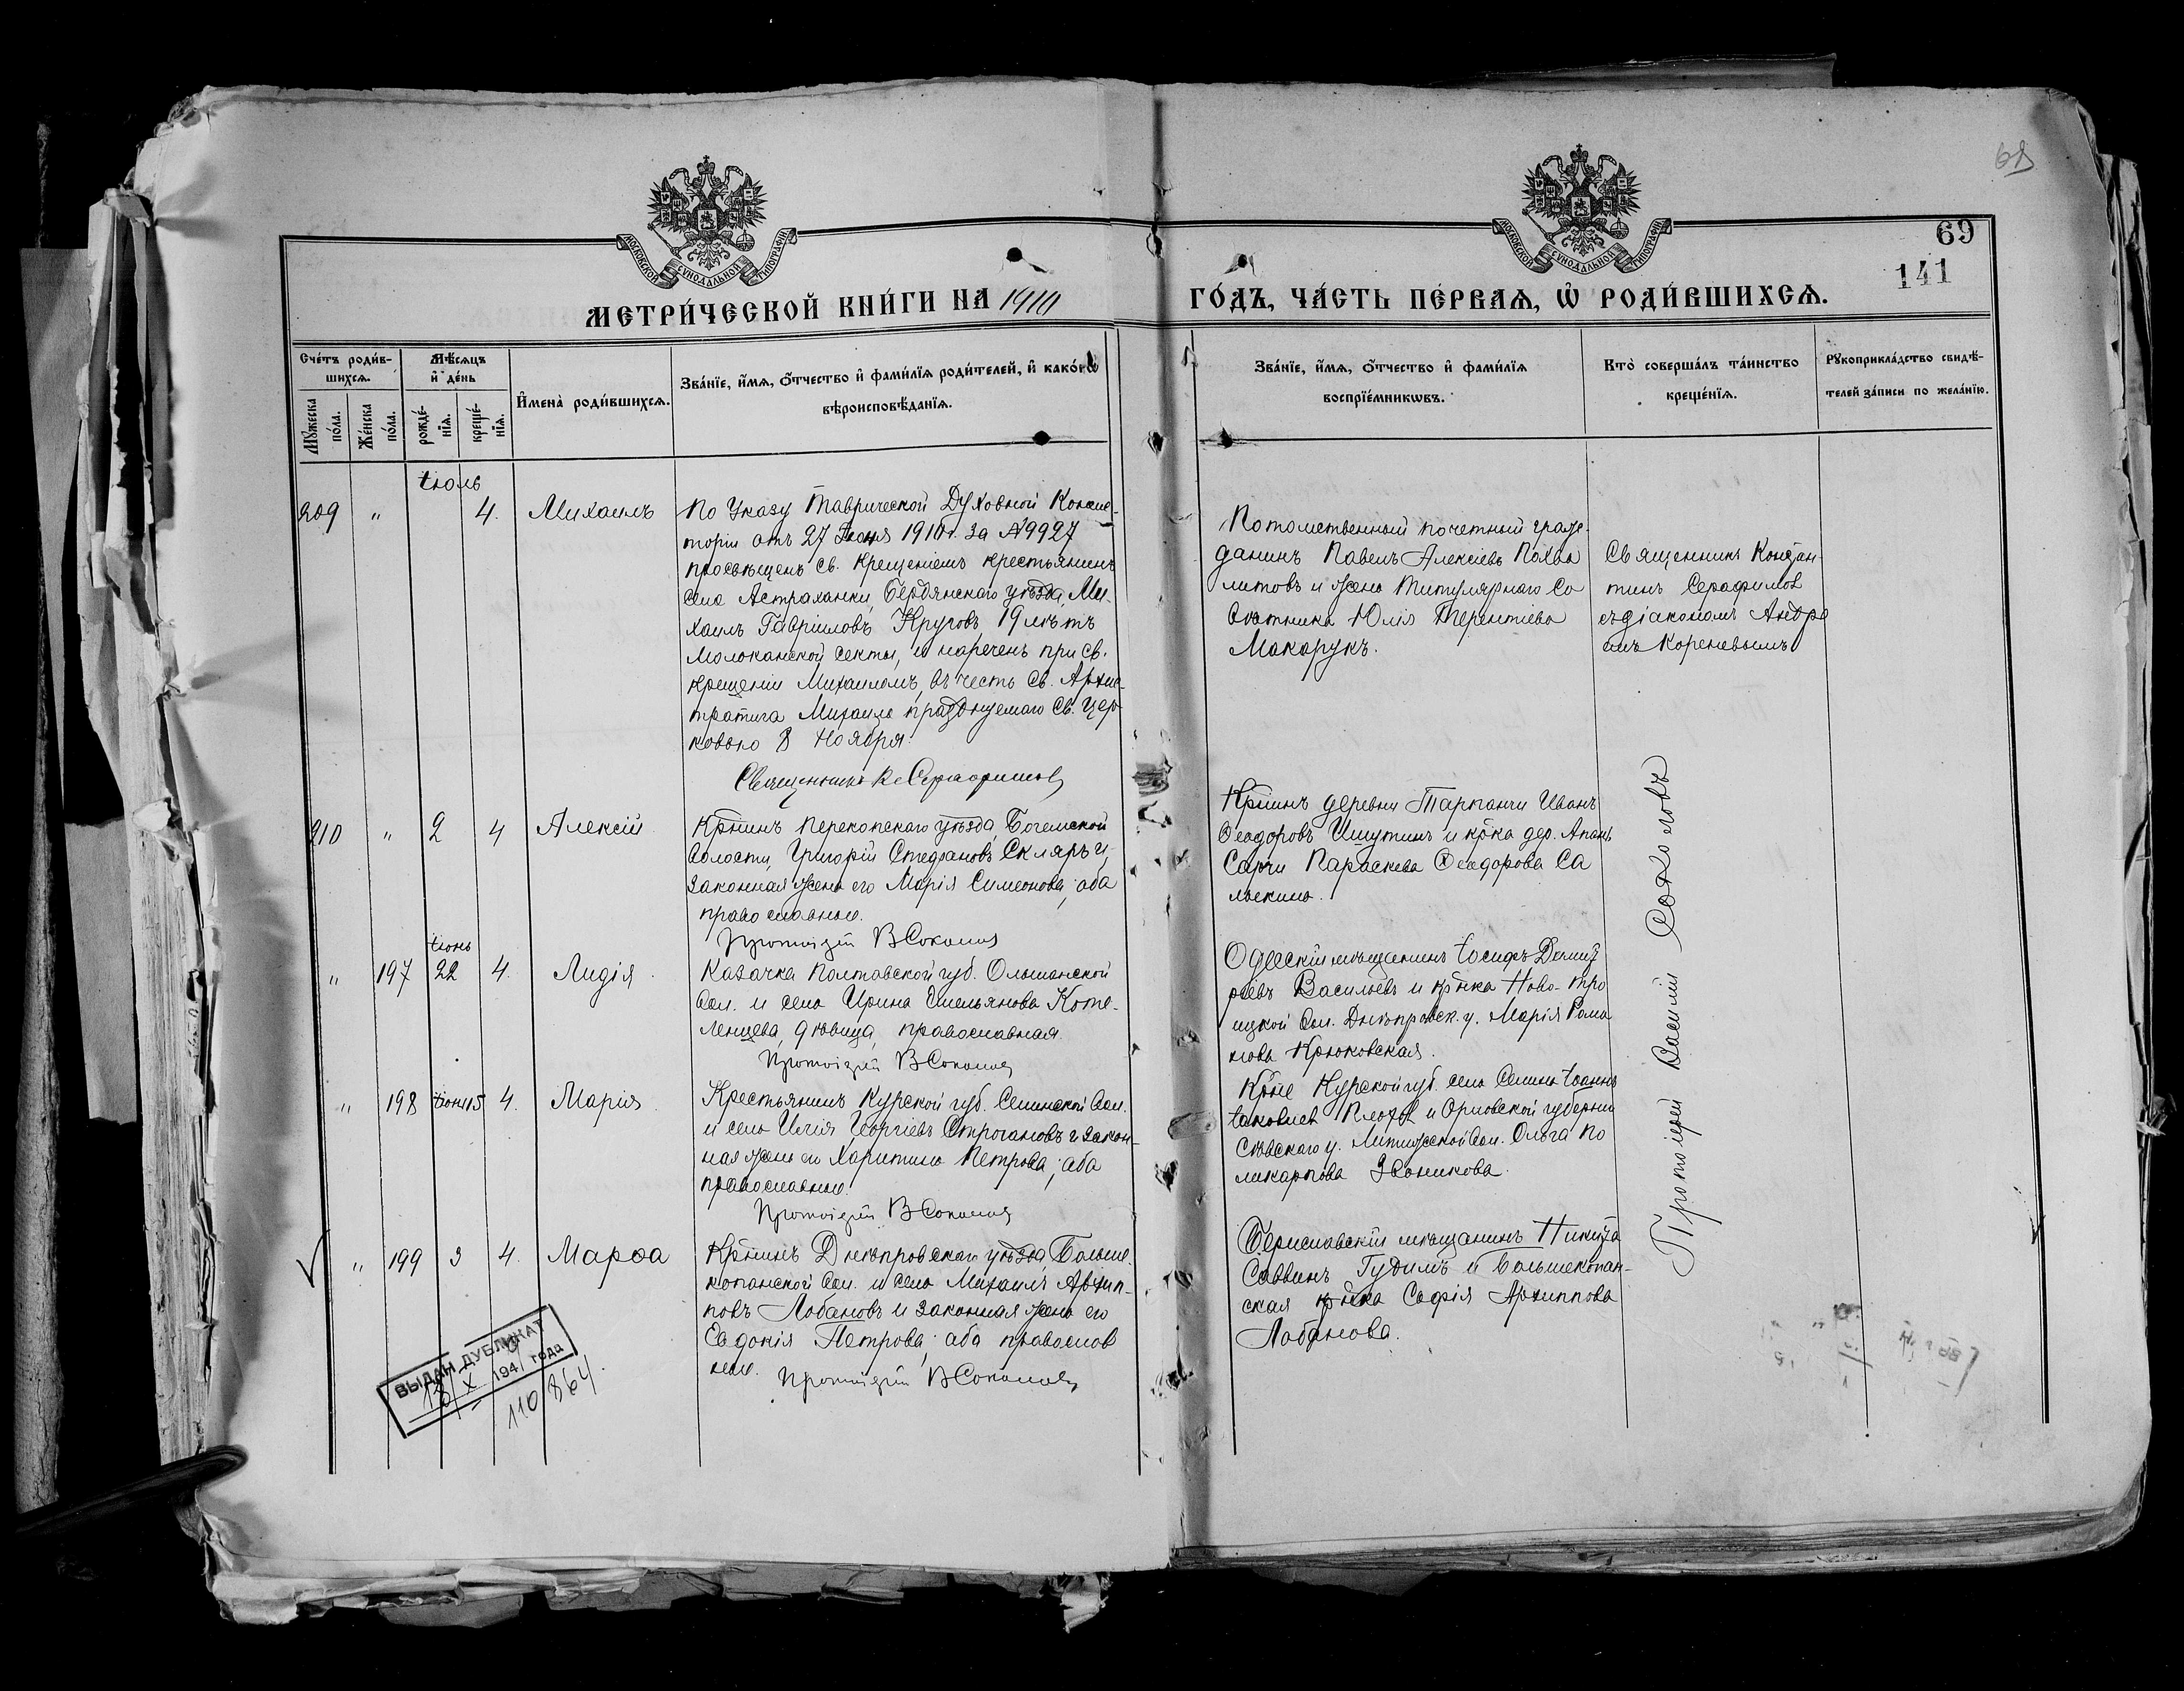 69
69
141
МОСКОВСКОЙ СѴНОДАЛЬНОЙ ТИПОГРАФІИ
МОСКОВСКОЙ СѴНОДАЛЬНОЙ ТИПОГРАФІИ
МЕТРИ́ЧЕСКОЙ КНИ́ГИ НА 1910
ГО́ДЪ, ЧА́СТЬ ПЕ́РВАѦ, Ѡ҆ РОДИ́ВШИХСѦ.
Сче́тъ роди́в-
шихсѧ.
Мѣ́сѧцъ
и҆ де́нь
И҆мена̀ роди́вшихсѧ.
Зва́нїе, и҆́мѧ, ѻ҆́тчество и҆ фами́лїѧ роди́телей, и҆ како́гѡ
вѣроисповѣ́данїѧ.
Мꙋ́жеска
по́ла.
Же́нска
по́ла.
рожде́-
нїѧ.
креще́-
нїѧ.
Зва́нїе, и҆́мѧ, ѻ҆́тчество и҆ фами́лїѧ
воспрїе́мникѡвъ.
Кто̀ соверша́лъ та́инство
креще́нїѧ.
Рꙋкоприкла́дство свидѣ́-
телей за́писи по жела́нїю.
Іюль
209 " 4. Михаилъ
По Указу Таврической Духовной Консис-
торіи отъ 27 Іюня 1910 г. за №9927
просвѣщенъ св. крещеніемъ крестьянинъ
села Астраханки, Бердянскаго уѣзда, Ми-
хаилъ Гавріиловъ Кругов 19 лѣтъ
Молоканской секты, и нареченъ при св.
крещеніи Михаиломъ, въ честь Св. Архис-
тратига Михаила празднуемаго Св. Цер-
ковью 8 Ноября.
Священникъ К. Серафимов
Потомственный почетный граж-
данинъ Павелъ Алексѣевъ Похва
литовъ и жена Титулярнаго Со
вѣтника Юлія Терентіева
Макарукъ.
Священникъ Констан-
тинъ Серафимов
съ діакономъ Андре
емъ Кореневымъ
210 " 2 4 Алексій
Кр-нинъ Перекопскаго уѣзда, Богемской
волости, Григорій Стефановъ Скляръ и
законная жена его Марія Симеонова; оба
православные.
Протоіерей В Соколов
Кр-нинъ деревни Тарханчи Иванъ
Ѳеодоровъ Ишутинъ и кр-ка дер. Апанъ
Сарчи Параскева Ѳеодорова Са
Іюнь
" 197 22 4. Лидія
Казачка Полтавской губ. Ольшанской
вол. и села Ирина Емельянова Коте-
ленцева, дѣвица, православная.
Протоіерей В Соколов
Одесскій мѣщанинъ Іосифъ Димит
ріевъ Васильевъ и кр-нка Ново-Тро
ицкой вол. Днѣпровск. у. Марія Рома
нова Крюковская.
" 198 Іюня 15 4. Марія
Крестьянинъ Курской губ. Семинской вол.
и села Илія Георгіевъ Строгановъ и закон-
ная жена его Харитина Петрова; оба
православные.
Протоіерей В Соколов
Кр-не Курской губ. села Іоаннъ
Іаковлев и Орловской губерніи
Сѣвскаго у. вол. Ольга По
ликарпова Звонникова.
" 199 3 4. Марѳа
Кр-нинъ Днѣпровскаго уѣзда, Больше-
копанской вол. и села Михаилъ Архип-
повъ Лобановъ и законная жена его
Евдокія Петрова; оба православ
ные.
Протоіерей В Соколов
Бериславскій мѣщанинъ Никита
Саввинъ Гудимъ и Большекопан-
ская кр-нка Софія Архиппова
Лобанова.
Протоіерей Василій Соколовъ
ВЫДАН ДУБЛИКАТ
18 X 194 года
110864.